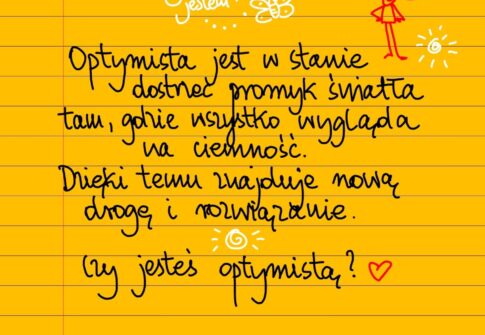 jestem
Optymista jest w stanie
dostrzec promyk światła
tam, gdzie wszystko wygląda
na ciemność.
Dzięki temu znajduje nową
drogę i rozwiązanie.
Czy jesteś optymistą?